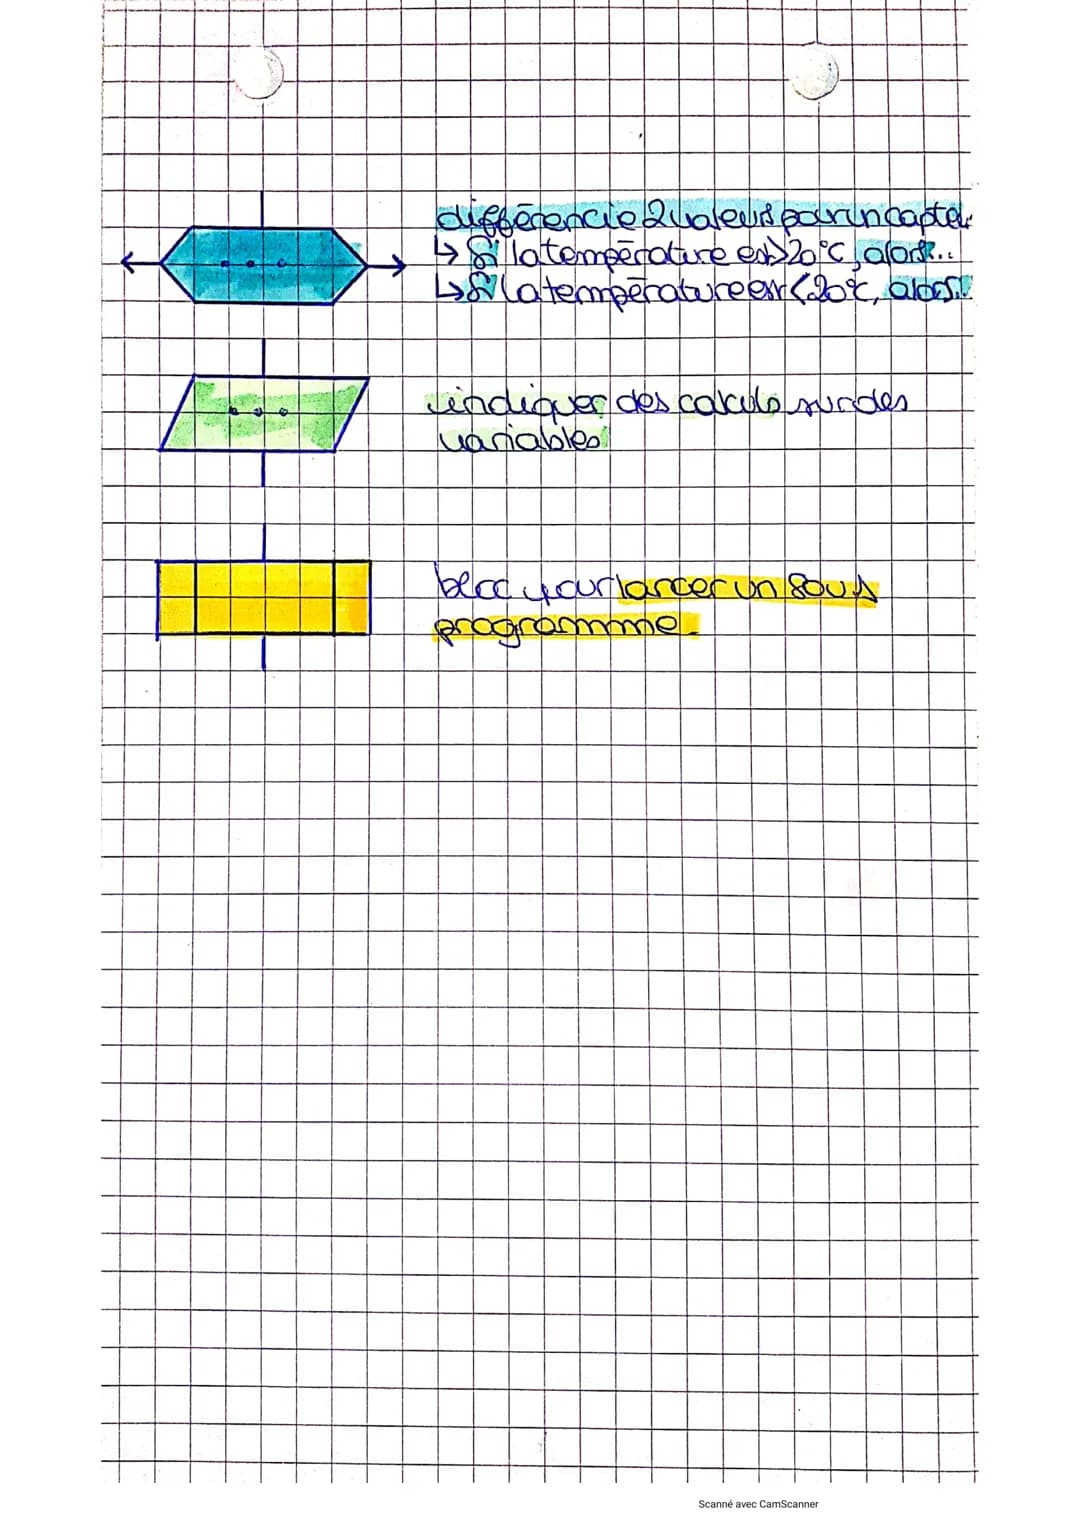 différencie 2 valeurs pour un capteur
↳ Si la température est > 20°C, alors...
↳ Si la température est < 20°C, alors...
indiquer des calculs sur des
variables
bloc pour lancer un sous
programme.
Scanné avec CamScanner